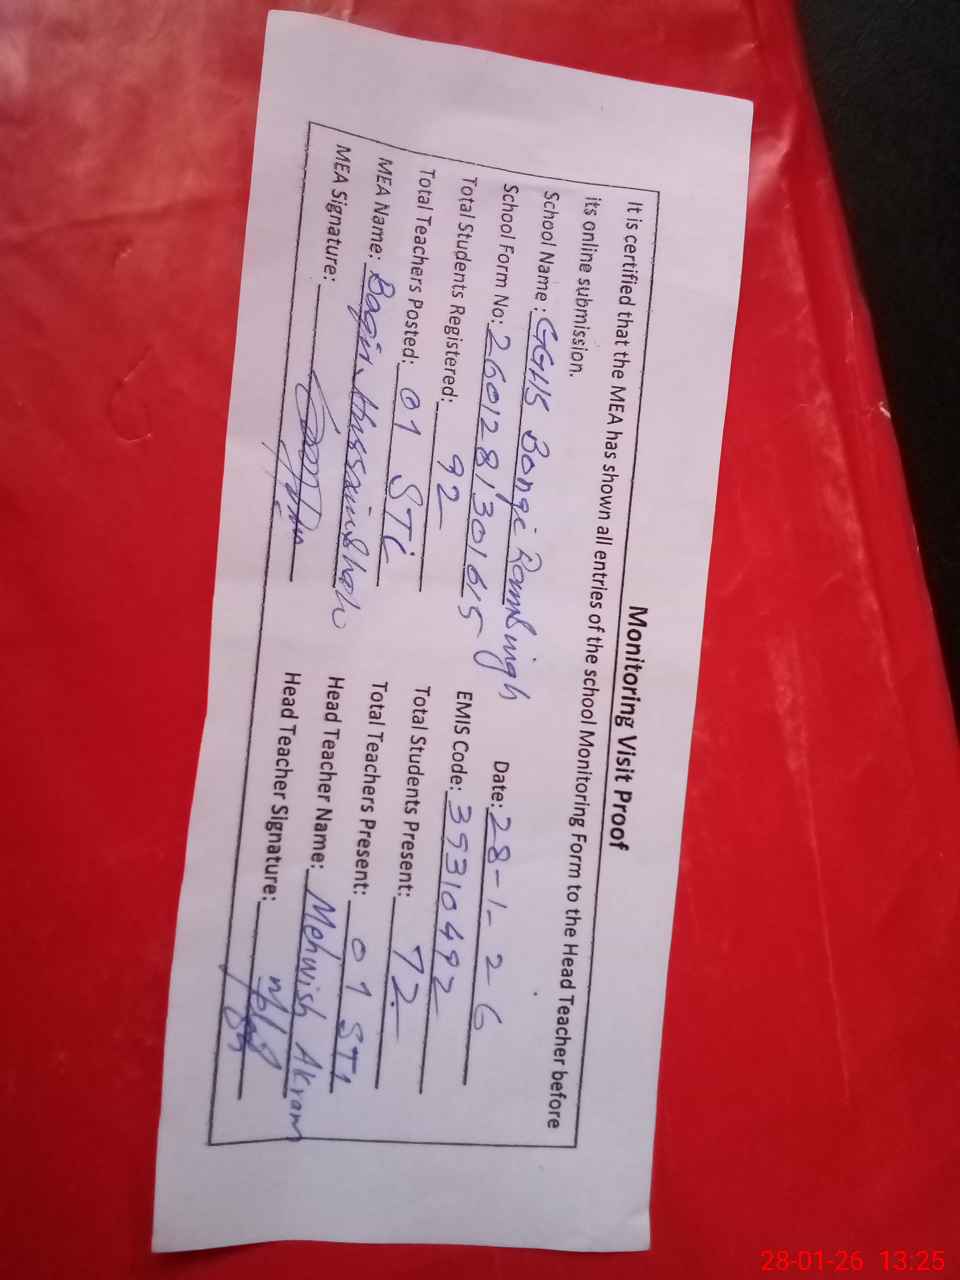 Monitoring Visit Proof
It is certified that the MEA has shown all entries of the school Monitoring Form to the Head Teacher before
its online submission.
School Name: GGHS Bongi RamSingh Date: 28-1-26
School Form No: 2601281301615 EMIS Code: 39310492
Total Students Registered: 92 Total Students Present: 72
Total Teachers Posted: 01 STI Total Teachers Present: 01 STI
MEA Name: Baqir Hussain Shah Head Teacher Name: Mehwish Akram
MEA Signature: Head Teacher Signature:
28-01-26 13:25